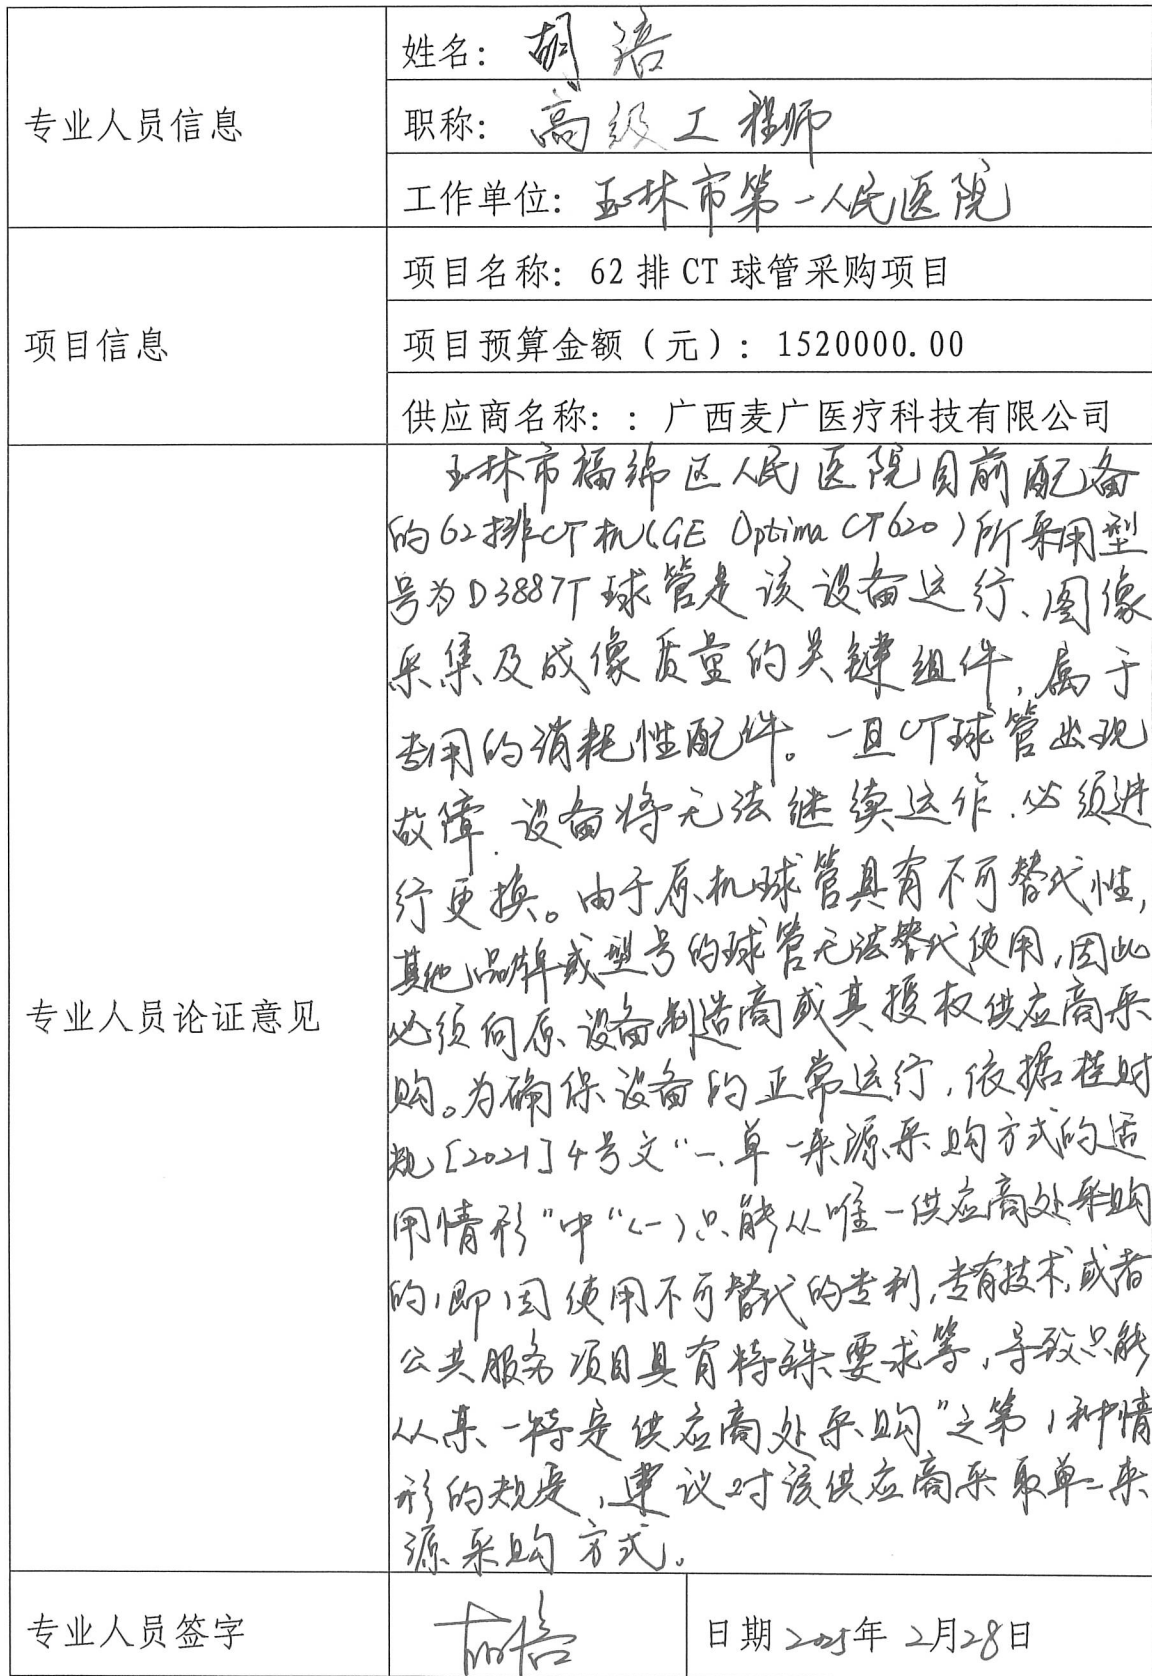 专业人员信息
姓名：胡
职称：高级工程师
工作单位：玉林市第一人民医院
项目信息
项目名称：62排CT球管采购项目
项目预算金额（元）：1520000.00
供应商名称：：广西麦广医疗科技有限公司
专业人员论证意见
玉林市福绵区人民医院目前配备
的62排CT机(GE Optima CT620)所采用型
号为D3887T球管是该设备运行、图像
采集及成像质量的关键组件,属于
专用的消耗性配件。一旦CT球管出现
故障,设备将无法继续运作,必须进
行更换。由于原机球管具有不可替代性,
其他品牌或型号的球管无法替代使用,因此
必须向原设备制造商或其授权供应商采
购。为确保设备的正常运行,依据桂财
规[2021]4号文“一、单一来源采购方式的适
用情形”中“(一)只能从唯一供应商处采购
的,即因使用不可替代的专利,专有技术,或者
公共服务项目具有特殊要求等,导致只能
从某一特定供应商处采购”之第1种情
形的规定,建议对该供应商采取单一来
源采购方式。
专业人员签字
日期2025年2月28日